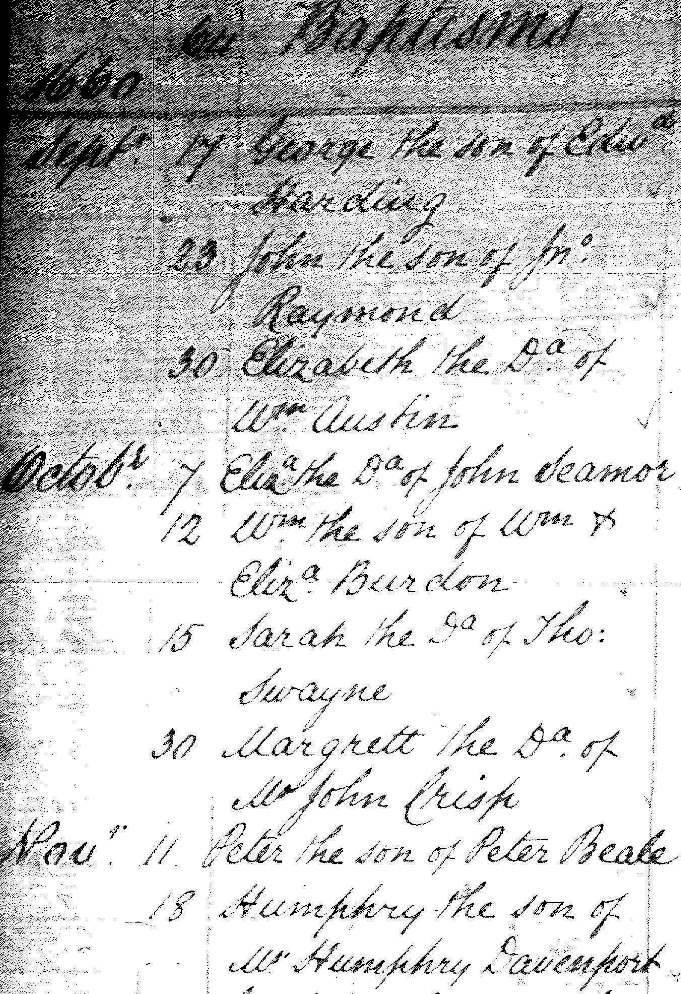 Baptisms
1660
Septr. 17 George the son of Edwd
Harding
23 John the son of Jno.
Raymond
30 Elizabeth the Da. of
Wm. Austin
Octobr. 7 Eliza. the Da. of John Seamor
12 Wm. the son of Wm &
Eliza. Burdon
15 Sarah the Da of Tho:
Swayne
30 Margrett the Da. of
Mr John Crisp
Novr. 11 Peter the son of Peter Beale
18 Humphry the son of
Mr Humphry Davenport